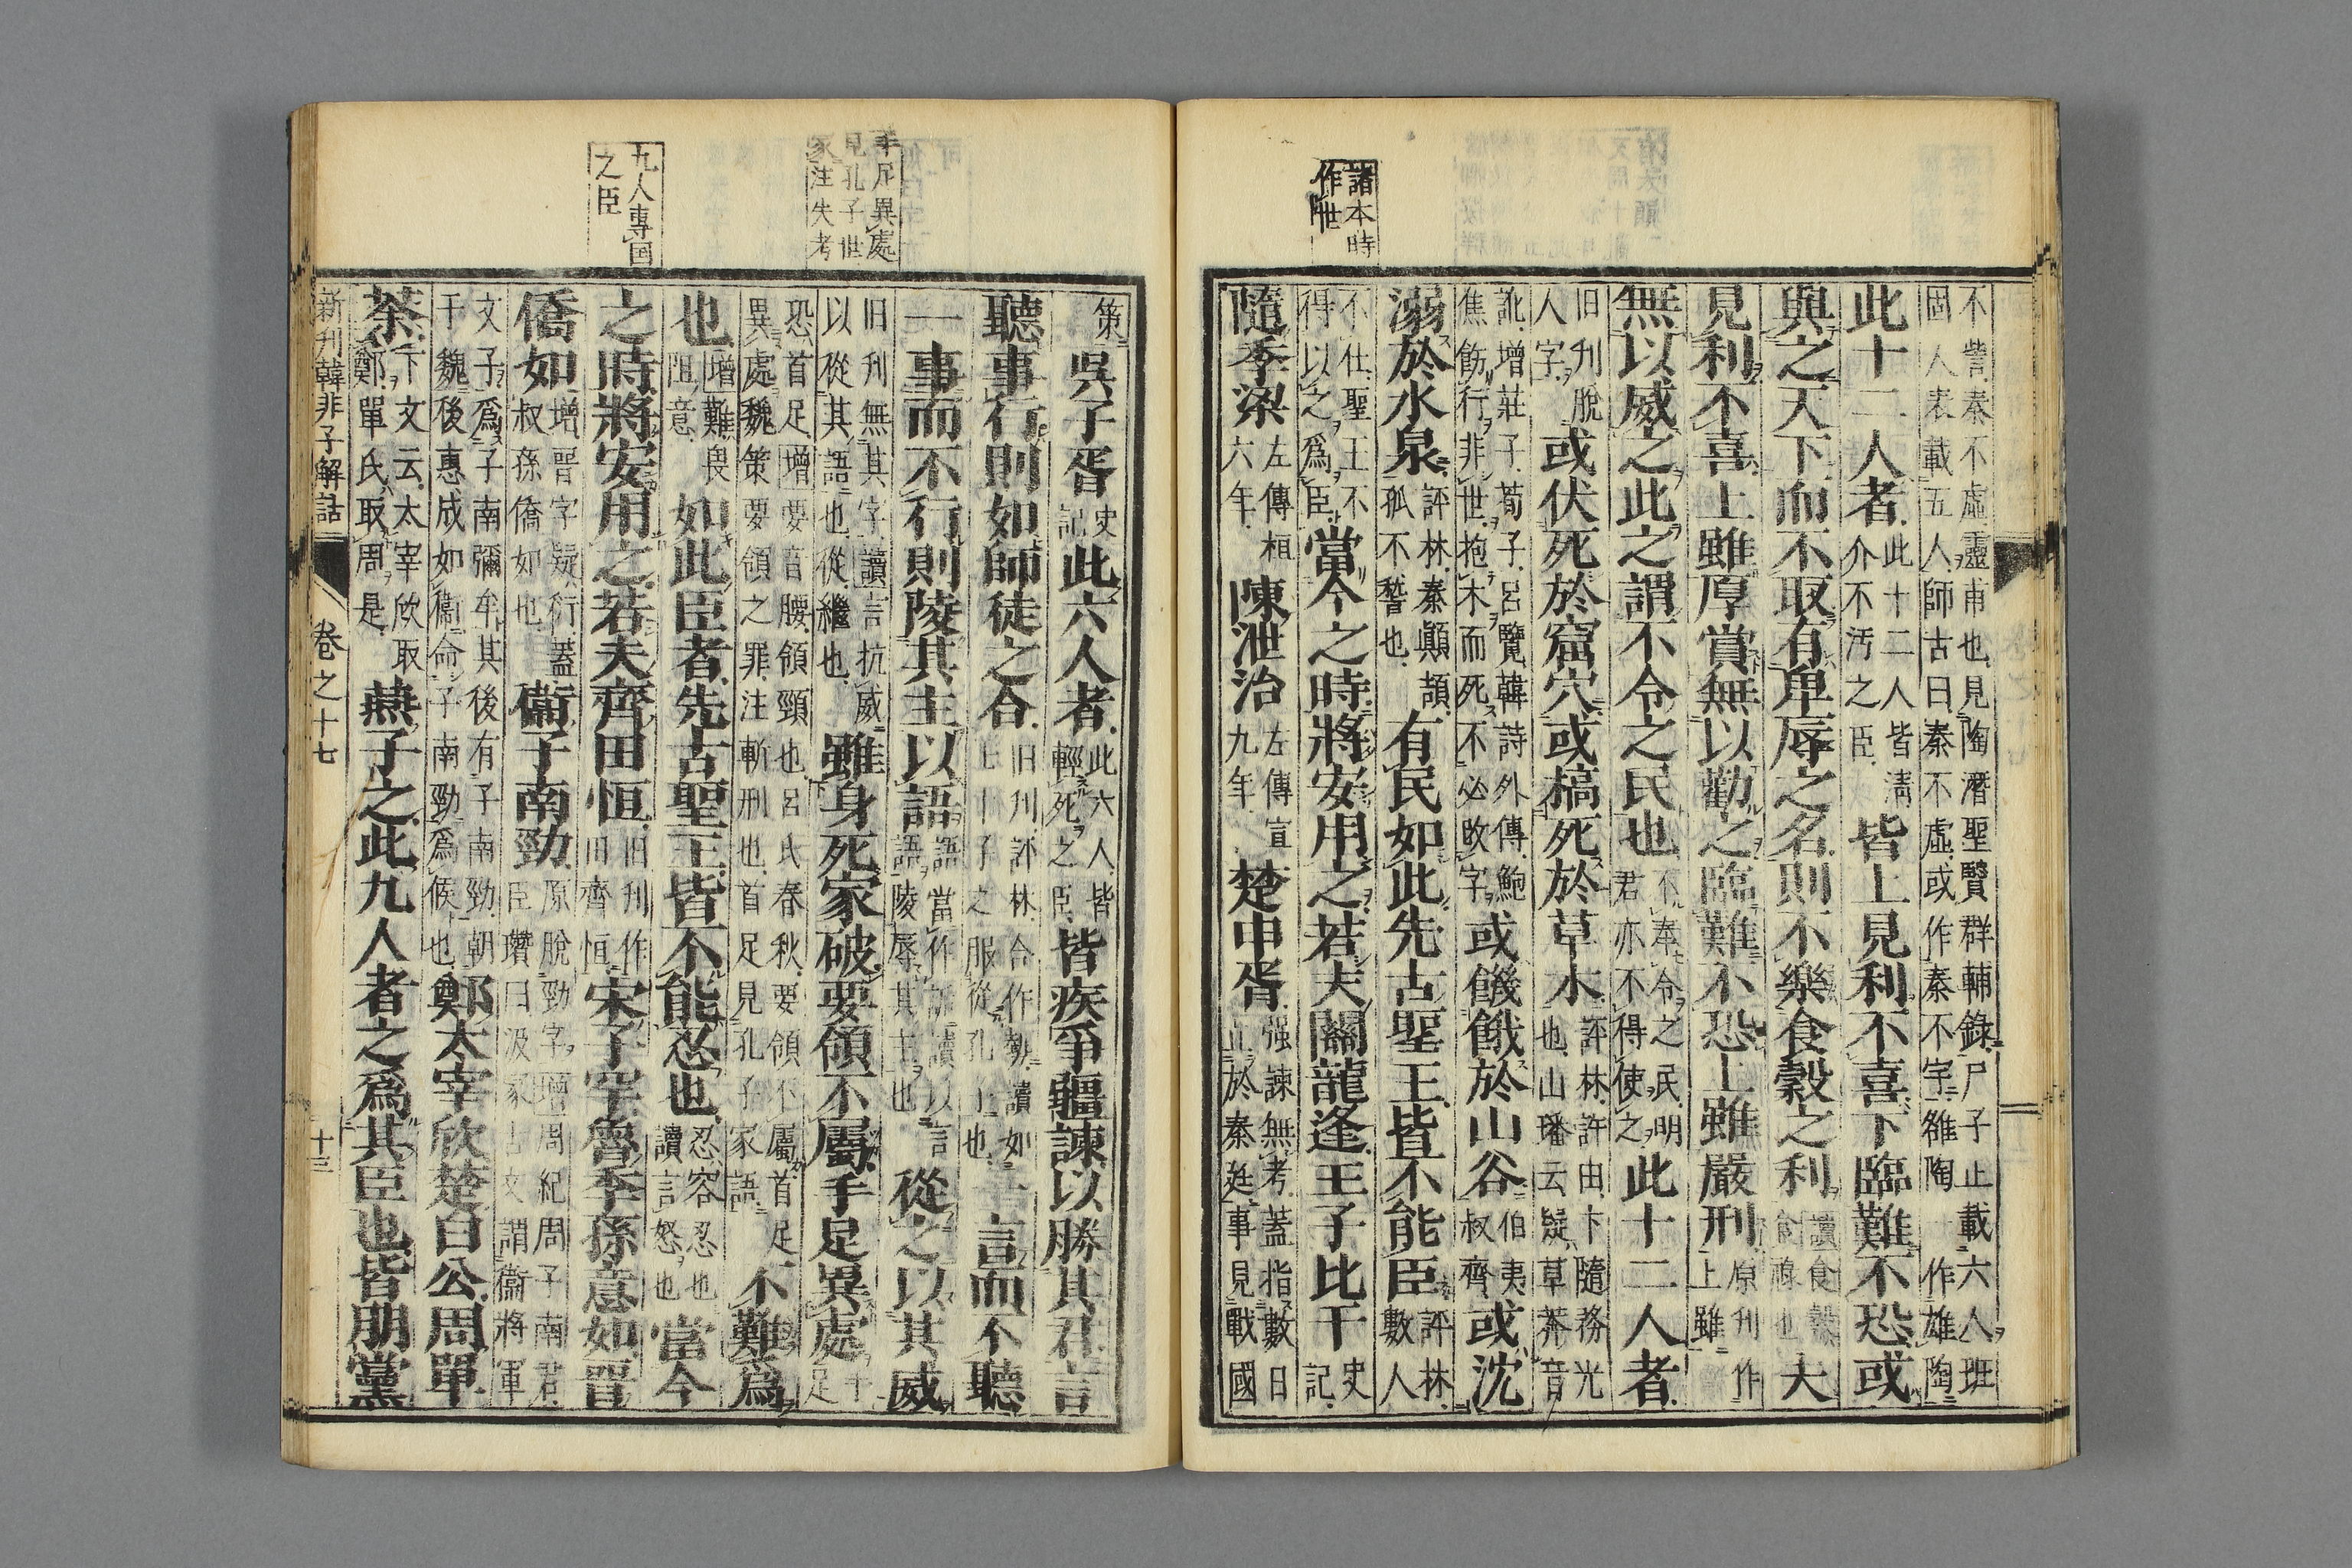 諸本時
作世
不訾秦不虛靈甫也見陶潛聖賢群輔錄尸子止載六人班
固人表載五人師古曰秦不虛或作秦不字雒陶 作雄陶
此十二人者 此十二人皆清
介不汚之臣 皆上見利不喜下臨難不恐或
與之天下而不取有卑辱之名則不樂食穀之利 讀食穀
食祿也 夫
見利不喜上雖厚賞無以勸之臨難不恐上雖嚴刑 原刊作
上雖
無以威之此之謂不令之民也 不奉令之民明
君亦不得使之 此十二人者
旧刊脫
人字 或伏死於窟穴或槁死於草木 評林許由卞隨務光
也山璠云疑草莽音
訛增莊子荀子呂覽韓詩外傳鮑
焦飭行非世抱木而死不必改字 或饑餓於山谷 伯夷
叔齊 或沈
溺於水泉 評林秦顚頡
孤不稽也 有民如此先古聖王皆不能臣 評林
數人
不仕聖王不
得以之爲臣 當今之時將安用之若夫關龍逢王子比干 史
記
隨季梁 左傳桓
六年 陳泄治 左傳宣
九年 楚申胥 强諫無考蓋指數日
止於秦廷事見戰國
手足異處
見孔子世
家注失考
九人專国
之臣
策 吳子胥 史
記 此六人者 此六人皆
輕死之臣 皆疾爭疆諫以勝其君言
聽事行則如師徒之合 旧刊評林合作勢讀如
七十子之服從孔子也 言而不聽
一事而不行則陵其主以語 語當作訴讀以言
語陵辱其主也 從之以其威
旧刊無其字讀言抗威
以從其語也從繼也 雖身死家破要領不屬手足異處 手
足
恐首足增要音腰領頸也呂氏春秋要領不屬首足
異處魏策要領之罪注斬刑也首足見孔子家語 不難爲
也 增難畏
阻意 如此臣者先古聖王皆不能忍也 忍容忍也
讀言怒也 當今
之時將安用之若夫齊田恒 旧刊作
齊恒 宋子罕魯季孫意如晋
僑如 增晋字疑衍蓋
叔孫僑如也 衞子南勁 原脫勁字增周紀周子南君
臣瓚曰汲冢古文謂衞將軍
文子爲子南彌牟其後有子南勁朝
于魏後惠成如衞命子南勁爲候也 鄭太宰欣楚白公周單
荼 下文云太宰欣取
鄭單氏取周是 燕子之此九人者之爲其臣也皆朋黨
新刊韓非子解詁 卷之十七 十三